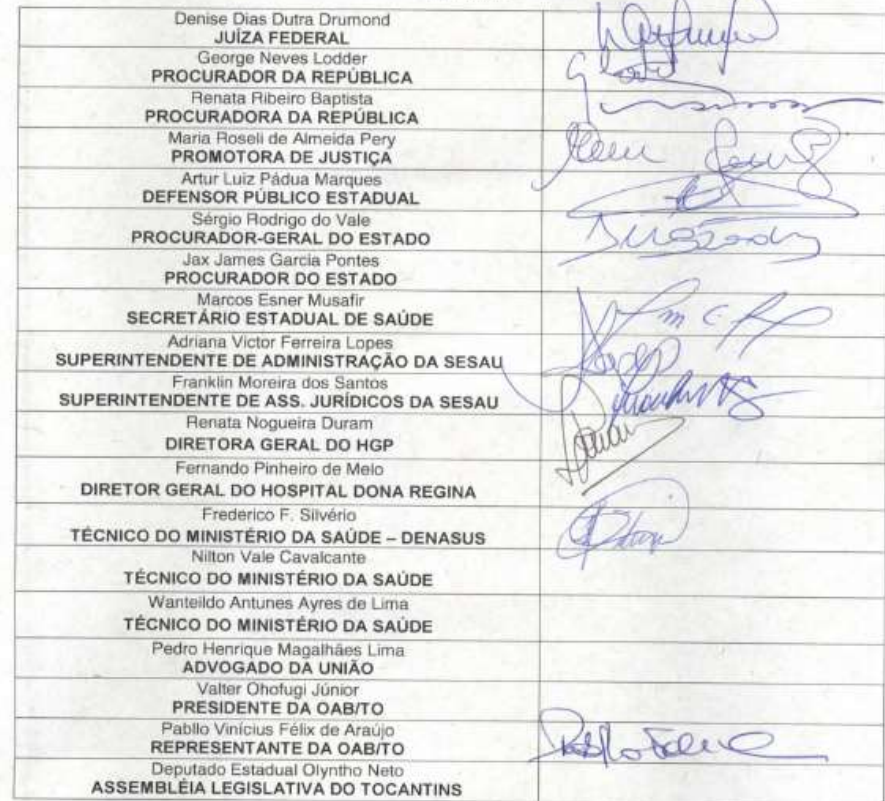 Denise Dias Dutra Drumond
JUÍZA FEDERAL
George Neves Lodder
PROCURADOR DA REPÚBLICA
Renata Ribeiro Baptista
PROCURADORA DA REPÚBLICA
Maria Roseli de Almeida Pery
PROMOTORA DE JUSTIÇA
Artur Luiz Pádua Marques
DEFENSOR PÚBLICO ESTADUAL
Sérgio Rodrigo do Vale
PROCURADOR-GERAL DO ESTADO
Jax James Garcia Pontes
PROCURADOR DO ESTADO
Marcos Esner Musafir
SECRETÁRIO ESTADUAL DE SAÚDE
Adriana Victor Ferreira Lopes
SUPERINTENDENTE DE ADMINISTRAÇÃO DA SESAU
Franklin Moreira dos Santos
SUPERINTENDENTE DE ASS. JURÍDICOS DA SESAU
Renata Nogueira Duram
DIRETORA GERAL DO HGP
Fernando Pinheiro de Melo
DIRETOR GERAL DO HOSPITAL DONA REGINA
Frederico F. Silvério
TÉCNICO DO MINISTÉRIO DA SAÚDE – DENASUS
Nilton Vale Cavalcante
TÉCNICO DO MINISTÉRIO DA SAÚDE
Wanteildo Antunes Ayres de Lima
TÉCNICO DO MINISTÉRIO DA SAÚDE
Pedro Henrique Magalhães Lima
ADVOGADO DA UNIÃO
Valter Ohofugi Júnior
PRESIDENTE DA OAB/TO
Pabllo Vinícius Félix de Araújo
REPRESENTANTE DA OAB/TO
Deputado Estadual Olyntho Neto
ASSEMBLÉIA LEGISLATIVA DO TOCANTINS